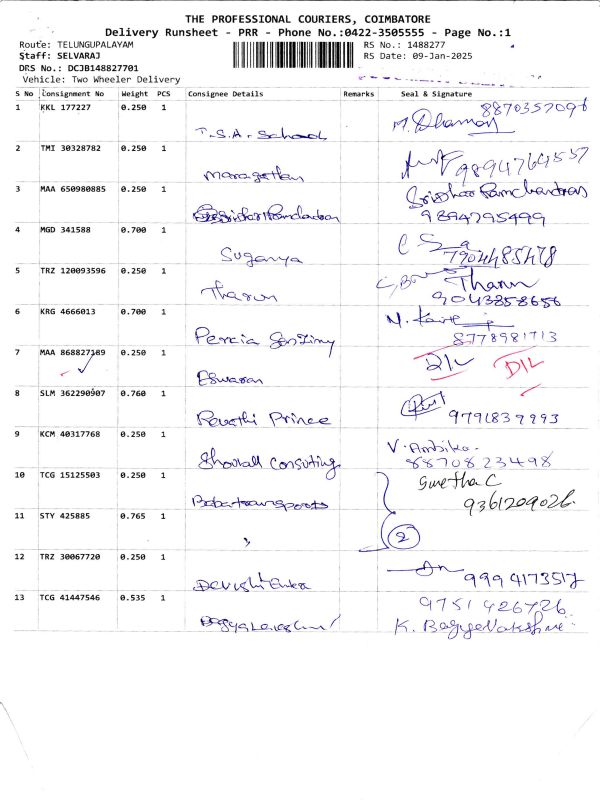 THE PROFESSIONAL COURIERS, COIMBATORE
Delivery Runsheet - PRR - Phone No.:0422-3505555 - Page No.:1
Route: TELUNGUPALAYAM RS No.: 1488277
Staff: SELVARAJ RS Date: 09-Jan-2025
DRS No.: DCJB148827701
Vehicle: Two Wheeler Delivery
S No Consignment No Weight PCS Consignee Details Remarks Seal & Signature
1 KKL 177227 0.250 1 8870357096
T.S.A. School M. Dhaman
2 TMI 30328782 0.250 1 9894764557
3 MAA 650980885 0.250 1
9894795499
4 MGD 341588 0.700 1
Suganya 7904485478
5 TRZ 120093596 0.250 1 Tharun
Tharun 9043858656
6 KRG 4666013 0.700 1
8778981713
7 MAA 868827189 0.250 1 DIL DIL
Eswaran
8 SLM 362290907 0.760 1
Revathi Prince 9791839993
9 KCM 40317768 0.250 1 V. Ambika.
88708 23498
10 TCG 15125503 0.250 1 Swetha C
Baba transports 9361209026
11 STY 425885 0.765 1
,, 2
12 TRZ 30067720 0.250 1
9994173517
13 TCG 41447546 0.535 1 9751426726
K. Bagyalakshmi